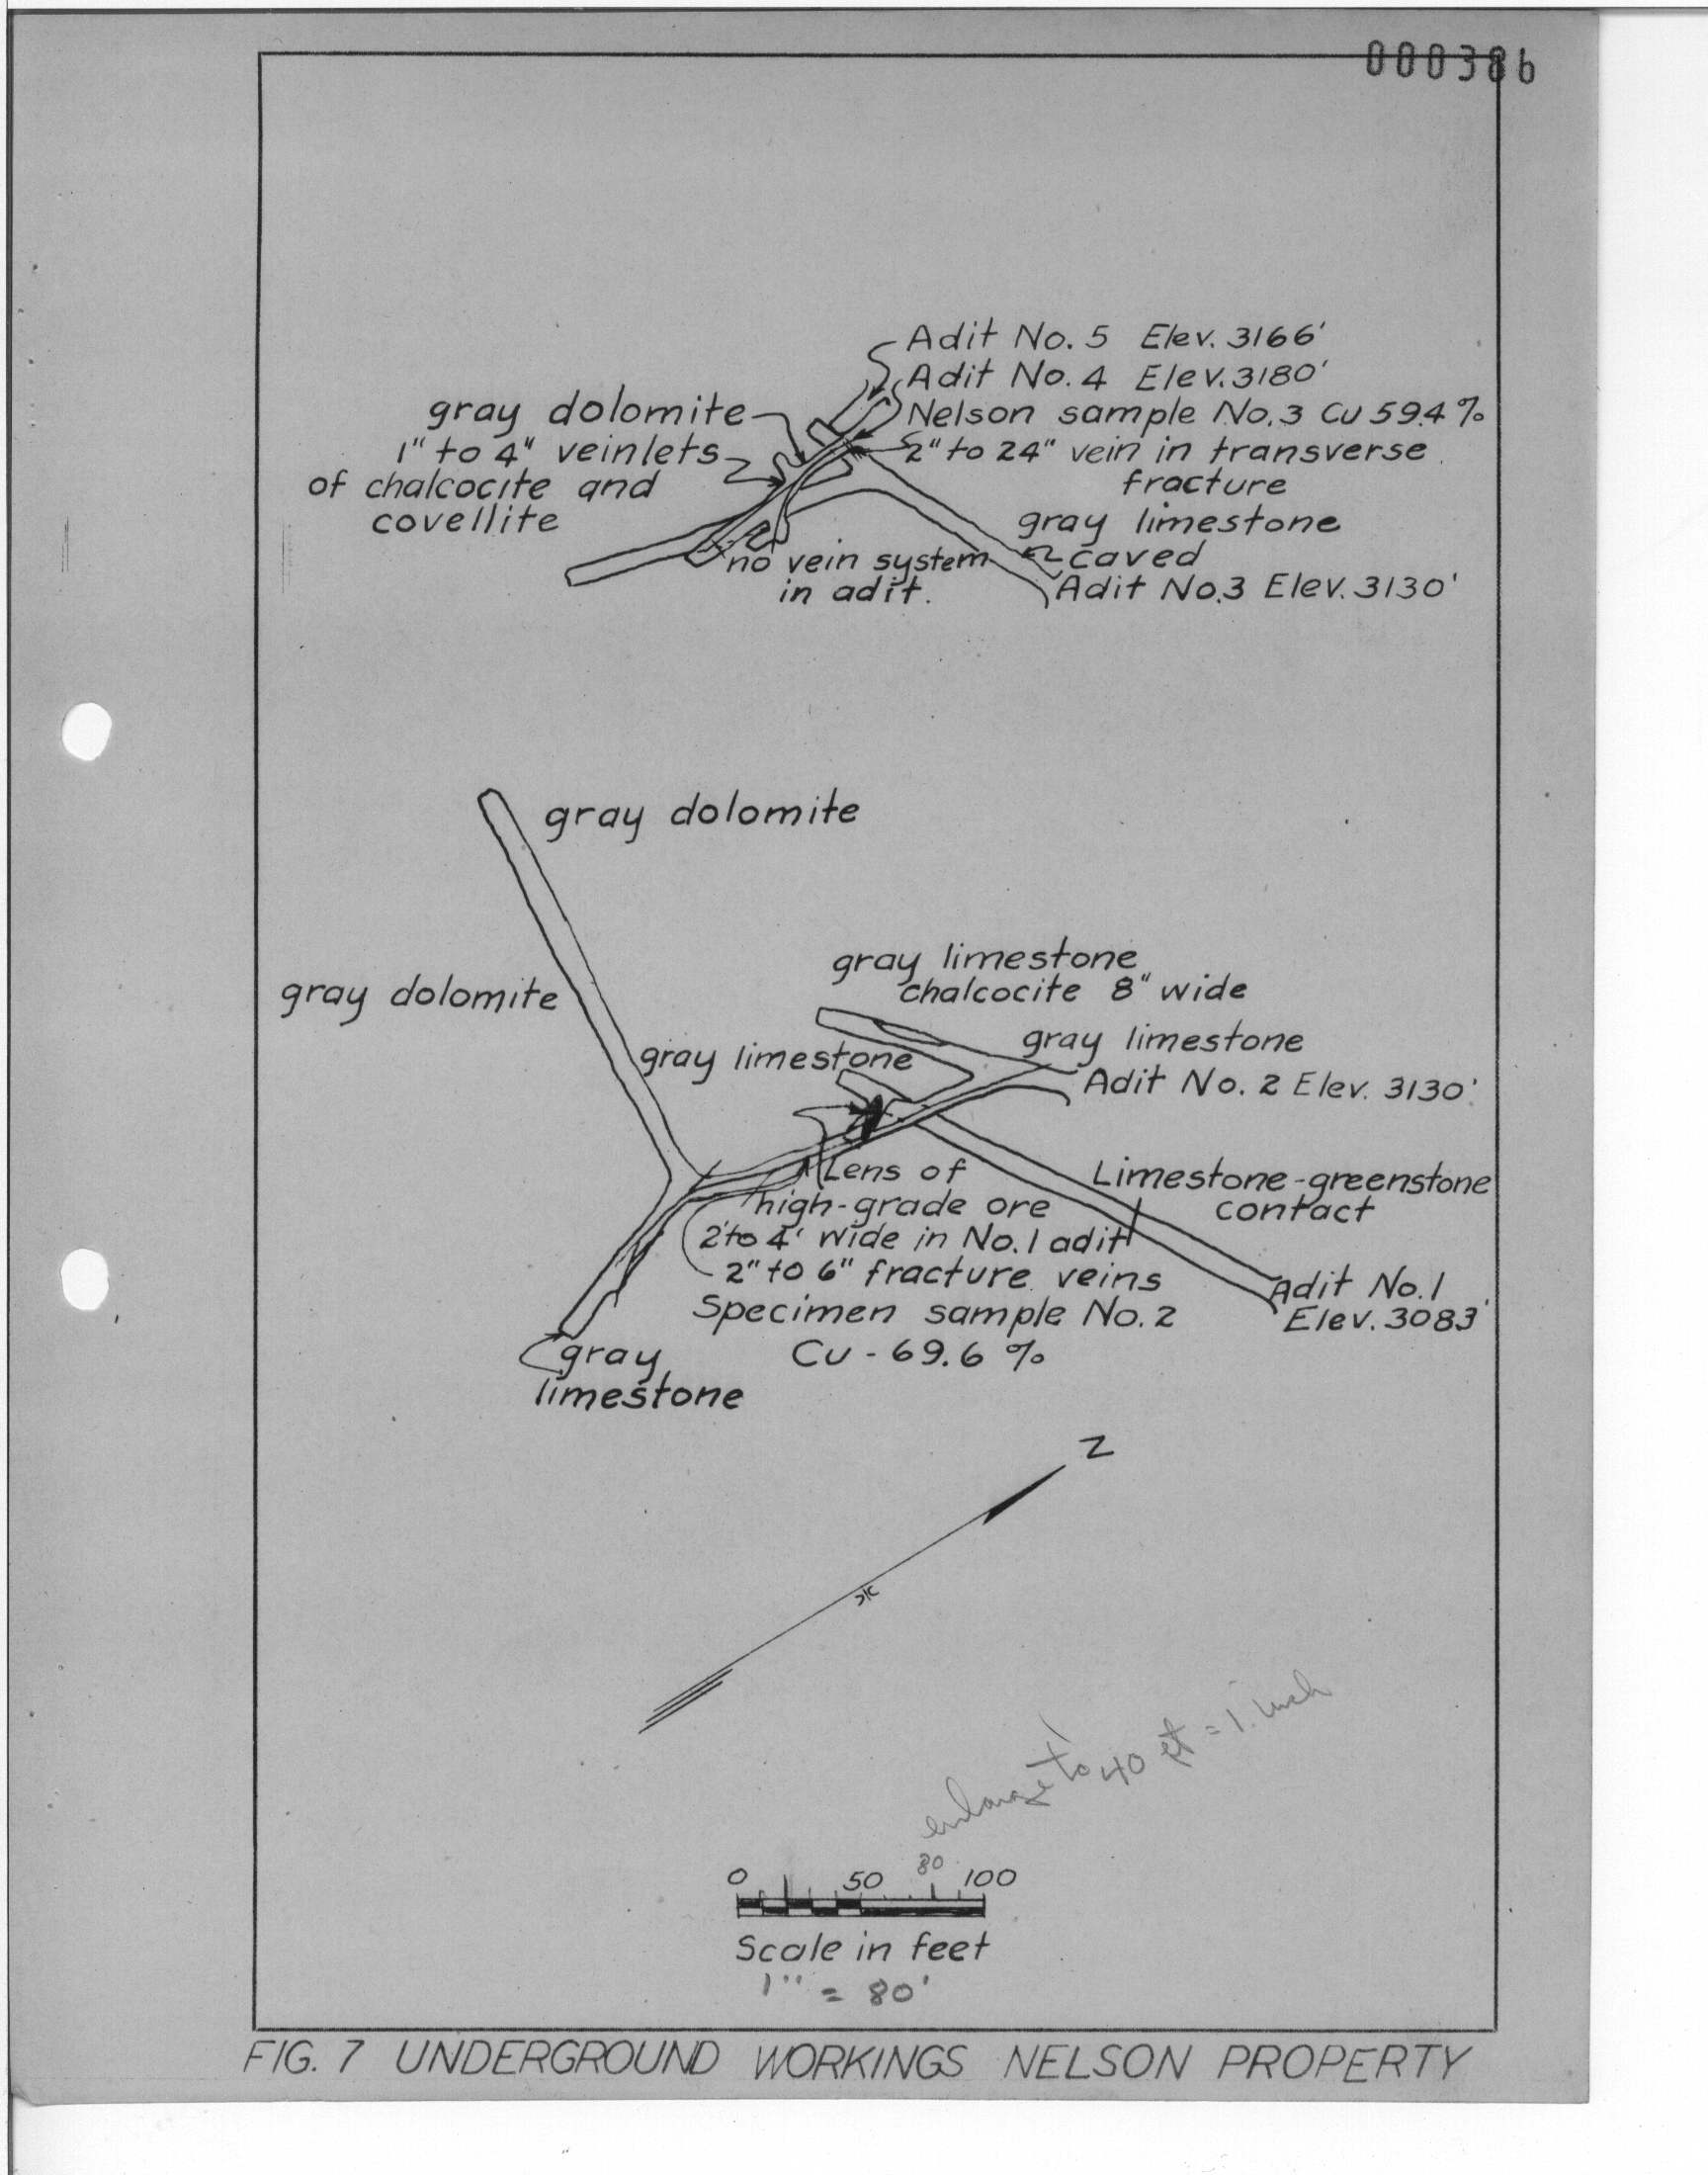 000386
Adit No. 5 Elev. 3166'
Adit No. 4 Elev. 3180'
gray dolomite
Nelson sample No. 3 Cu 59.4 %
1" to 4" veinlets
2" to 24" vein in transverse
of chalcocite and
fracture
covellite
gray limestone
no vein system
caved
in adit.
Adit No. 3 Elev. 3130'
gray dolomite
gray limestone
gray dolomite
chalcocite 8" wide
gray limestone
gray limestone
Adit No. 2 Elev. 3130'
Lens of
Limestone-greenstone
high-grade ore
contact
2' to 4' wide in No. 1 adit
2" to 6" fracture veins
Adit No. 1
Specimen sample No. 2
Elev. 3083'
Cu - 69.6 %
gray
limestone
N
enlarge to 40 ft = 1 inch
0 50 80 100
Scale in feet
1" = 80'
FIG. 7 UNDERGROUND WORKINGS NELSON PROPERTY